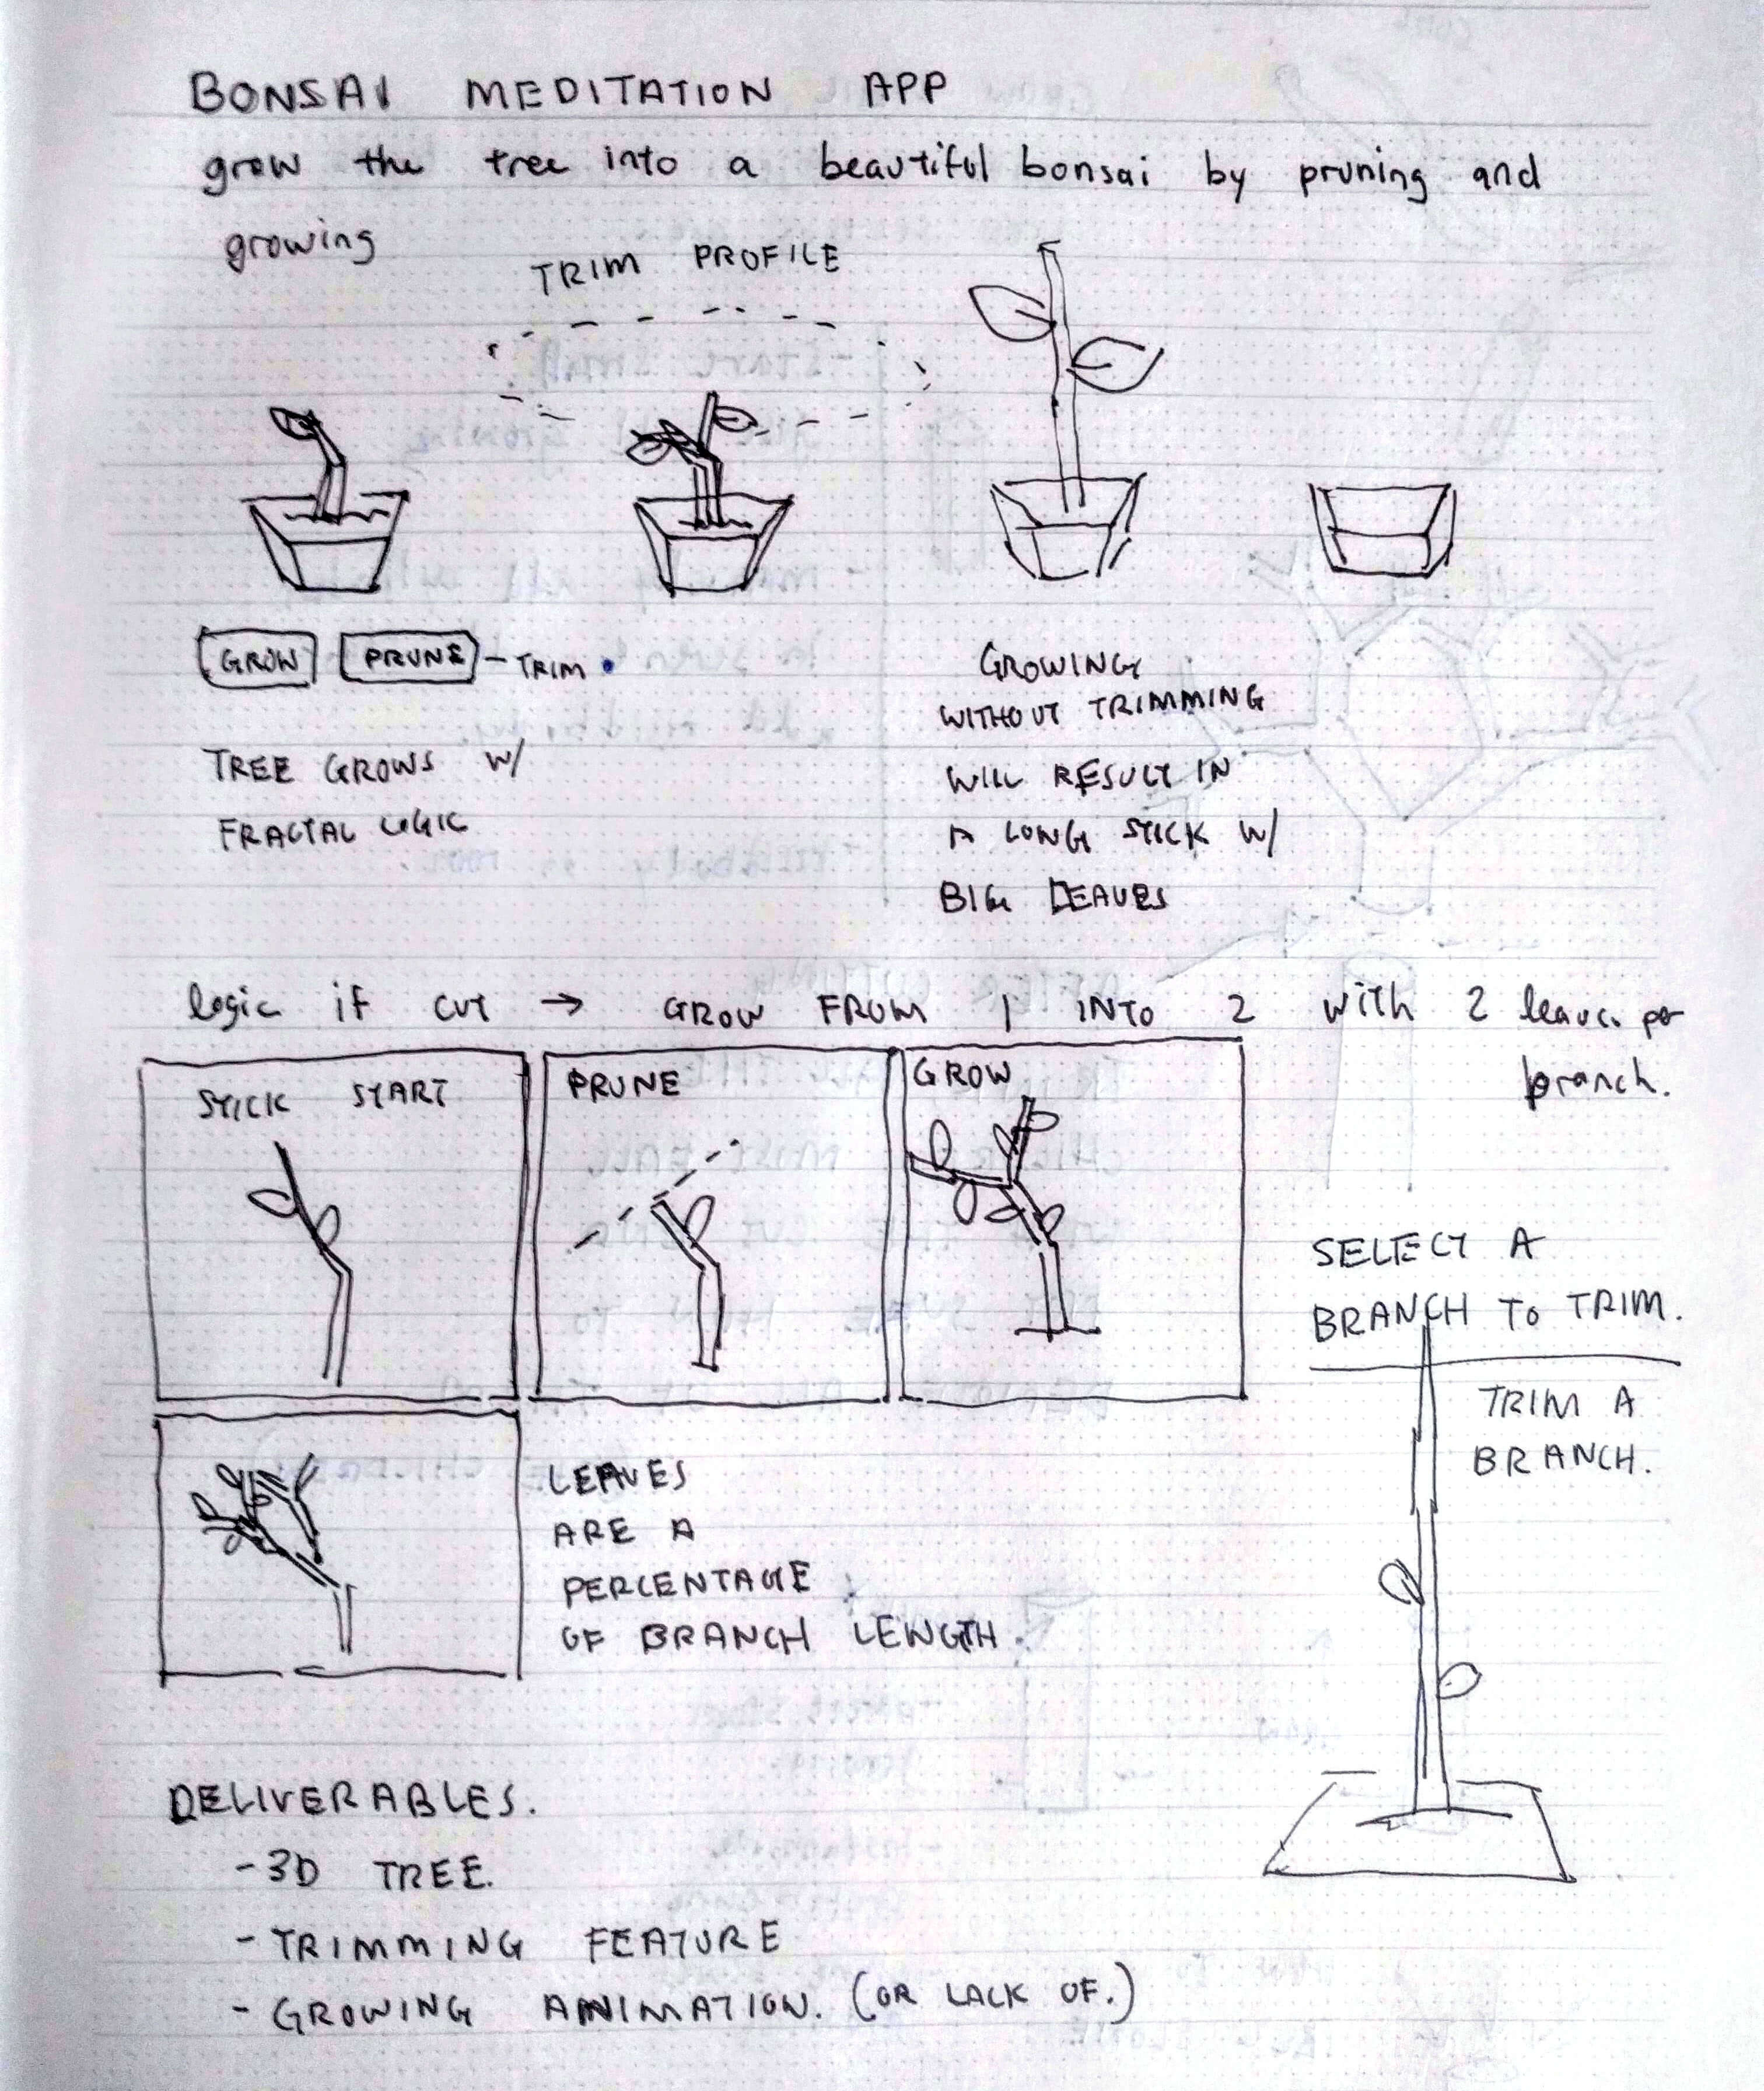 BONSAI MEDITATION APP
grow the tree into a beautiful bonsai by pruning and
growing
TRIM PROFILE
GROW PRUNE - TRIM
TREE GROWS W/
FRACTAL LOGIC
GROWING
WITHOUT TRIMMING
WILL RESULT IN
A LONG STICK W/
BIG LEAVES
logic if CUT → GROW FROM 1 INTO 2 with 2 leaves per
branch.
STICK START
PRUNE
GROW
SELECT A
BRANCH TO TRIM.
TRIM A
BRANCH.
LEAVES
ARE A
PERCENTAGE
OF BRANCH LENGTH
DELIVERABLES.
- 3D TREE.
- TRIMMING FEATURE
- GROWING ANIMATION. (OR LACK OF.)